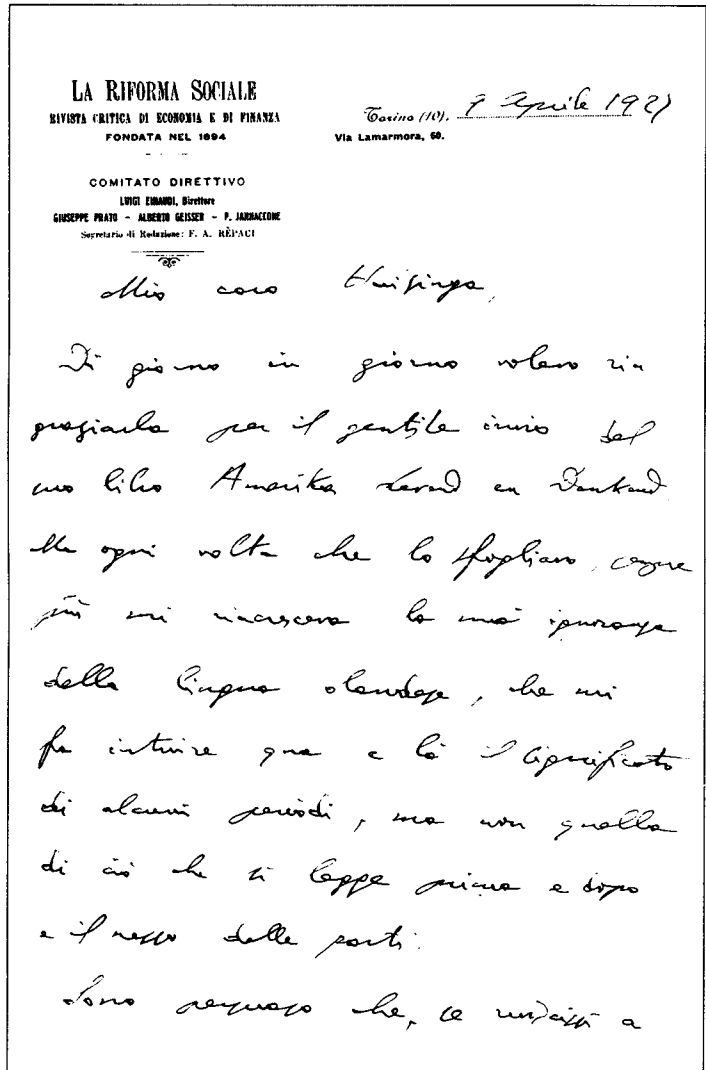 LA RIFORMA SOCIALE
RIVISTA CRITICA DI ECONOMIA E DI FINANZA
FONDATA NEL 1894
COMITATO DIRETTIVO
LUIGI EINAUDI, Direttore
GIUSEPPE PRATO - ALBERTO GEISSER - P. JANNACCONE
Segretario di Redazione: F. A. RÈPACI
Torino (10), 9 Aprile 1927
Via Lamarmora, 60.
Mio caro Huizinga,
Di giorno in giorno volevo rin
graziarla per il gentile invio del
suo libro Amerika Levend en Denkend
Ma ogni volta che lo sfogliavo, sempre
più mi rincresceva la mia ignoranza
della lingua olandese, che mi
fa intuire qua e là il significato
di alcuni periodi, ma non quello
di ciò che si legge prima e dopo
e il nesso delle parti.
Sono persuaso che, se riuscissi a